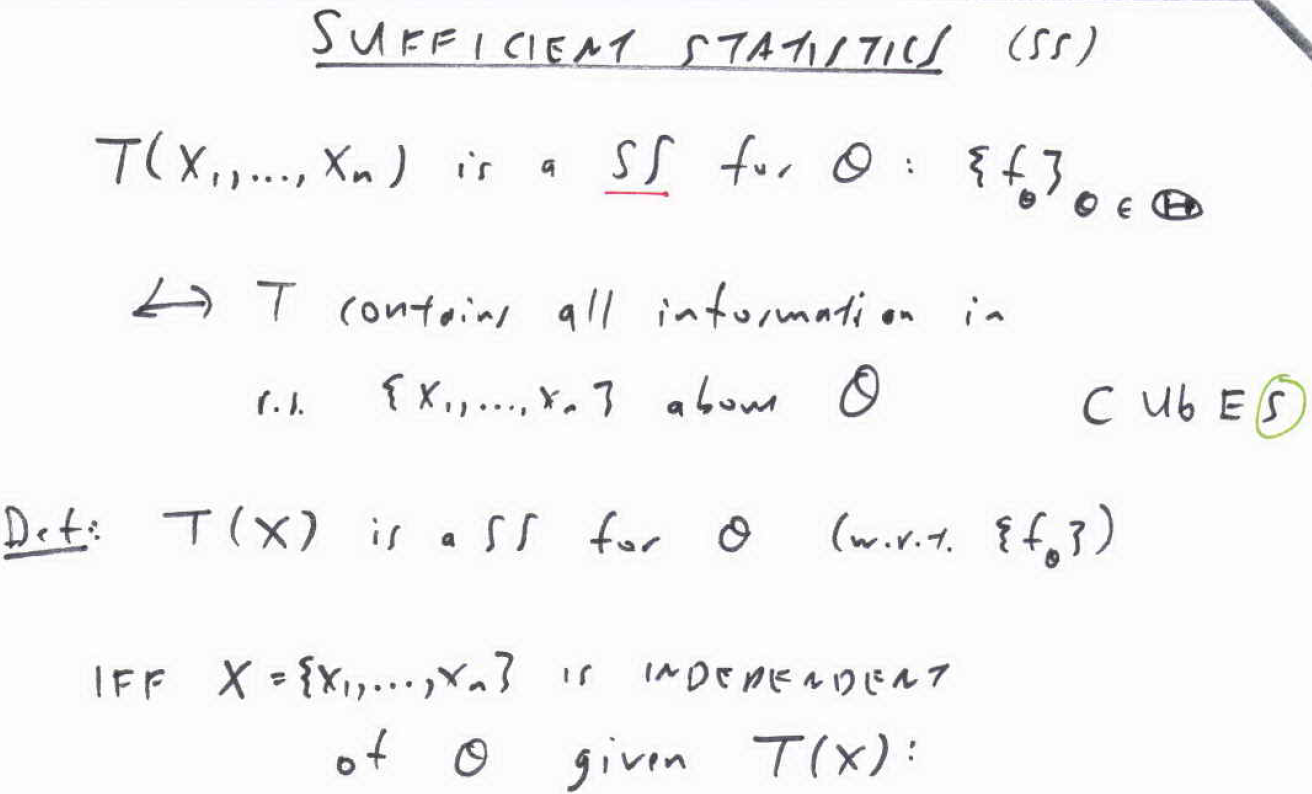 SUFFICIENT STATISTICS (SS)
T(X₁,..., Xₙ) is a SS for θ : {f_θ}_θ ∈ Θ
↔ T contains all information in
r.s. {X₁,..., Xₙ} about θ C U b E S
Def: T(X) is a SS for θ (w.r.t. {f_θ})
IFF X = {X₁,..., Xₙ} is INDEPENDENT
of θ given T(X):